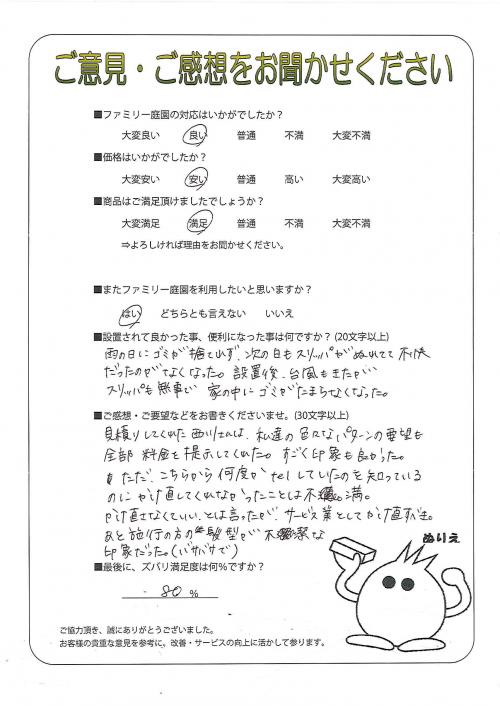 ご意見・ご感想をお聞かせください
■ファミリー庭園の対応はいかがでしたか？
大変良い 良い 普通 不満 大変不満
■価格はいかがでしたか？
大変安い 安い 普通 高い 大変高い
■商品はご満足頂けましたでしょうか？
大変満足 満足 普通 不満 大変不満
⇒よろしければ理由をお聞かせください。
■またファミリー庭園を利用したいと思いますか？
はい どちらとも言えない いいえ
■設置されて良かった事、便利になった事は何ですか？(20文字以上)
雨の日にゴミが捨てれず、次の日もスリッパがぬれてて不快
だったのがなくなった。設置後、台風もきたが
スリッパも無事で 家の中にゴミがたまらなくなった。
■ご感想・ご要望などをお書きくださいませ。(30文字以上)
見積りしてくれた西川さんは、私達の色々なパターンの要望も
全部 料金を提示してくれた。すごく印象も良かった。
ただ、こちらから何度か telしていたのを知っている
のにかけ直してくれなかったことは不満。
かけ直さなくていい、とは言ったが、サービス業としてかけ直すべき。
あと施行の方の髪型が不潔な
印象だった。(バサバサで)
■最後に、ズバリ満足度は何％ですか？
80 %
ぬりえ
ご協力頂き、誠にありがとうございました。
お客様の貴重な意見を参考に、改善・サービスの向上に活かして参ります。